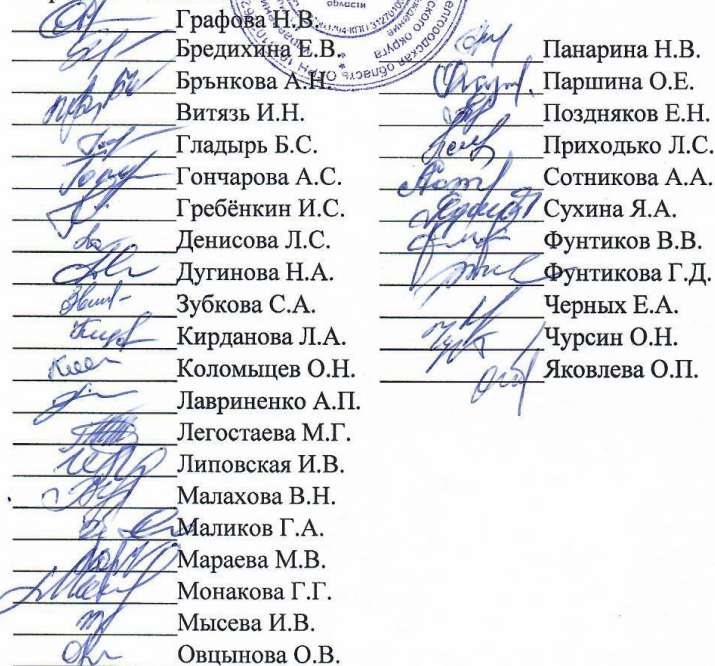 Графова Н.В.
Бредихина Е.В.
Брънкова А.Н.
Витязь И.Н.
Гладырь Б.С.
Гончарова А.С.
Гребёнкин И.С.
Денисова Л.С.
Дугинова Н.А.
Зубкова С.А.
Кирданова Л.А.
Коломыцев О.Н.
Лавриненко А.П.
Легостаева М.Г.
Липовская И.В.
Малахова В.Н.
Маликов Г.А.
Мараева М.В.
Монакова Г.Г.
Мысева И.В.
Овцынова О.В.
Панарина Н.В.
Паршина О.Е.
Поздняков Е.Н.
Приходько Л.С.
Сотникова А.А.
Сухина Я.А.
Фунтиков В.В.
Фунтикова Г.Д.
Черных Е.А.
Чурсин О.Н.
Яковлева О.П.
области